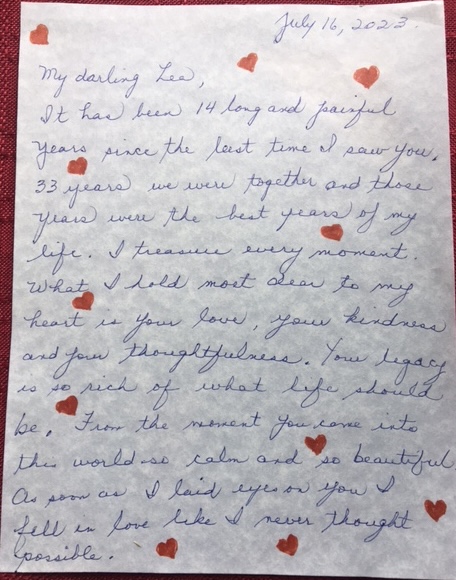 July 16, 2023.
My darling Lea,
It has been 14 long and painful
years since the last time I saw you.
33 years we were together and those
years were the best years of my
life. I treasure every moment.
What I hold most dear to my
heart is your love, your kindness
and your thoughtfulness. Your legacy
is so rich of what life should
be. From the moment you came into
this world so calm and so beautiful.
As soon as I laid eyes on you I
fell in love like I never thought
possible.